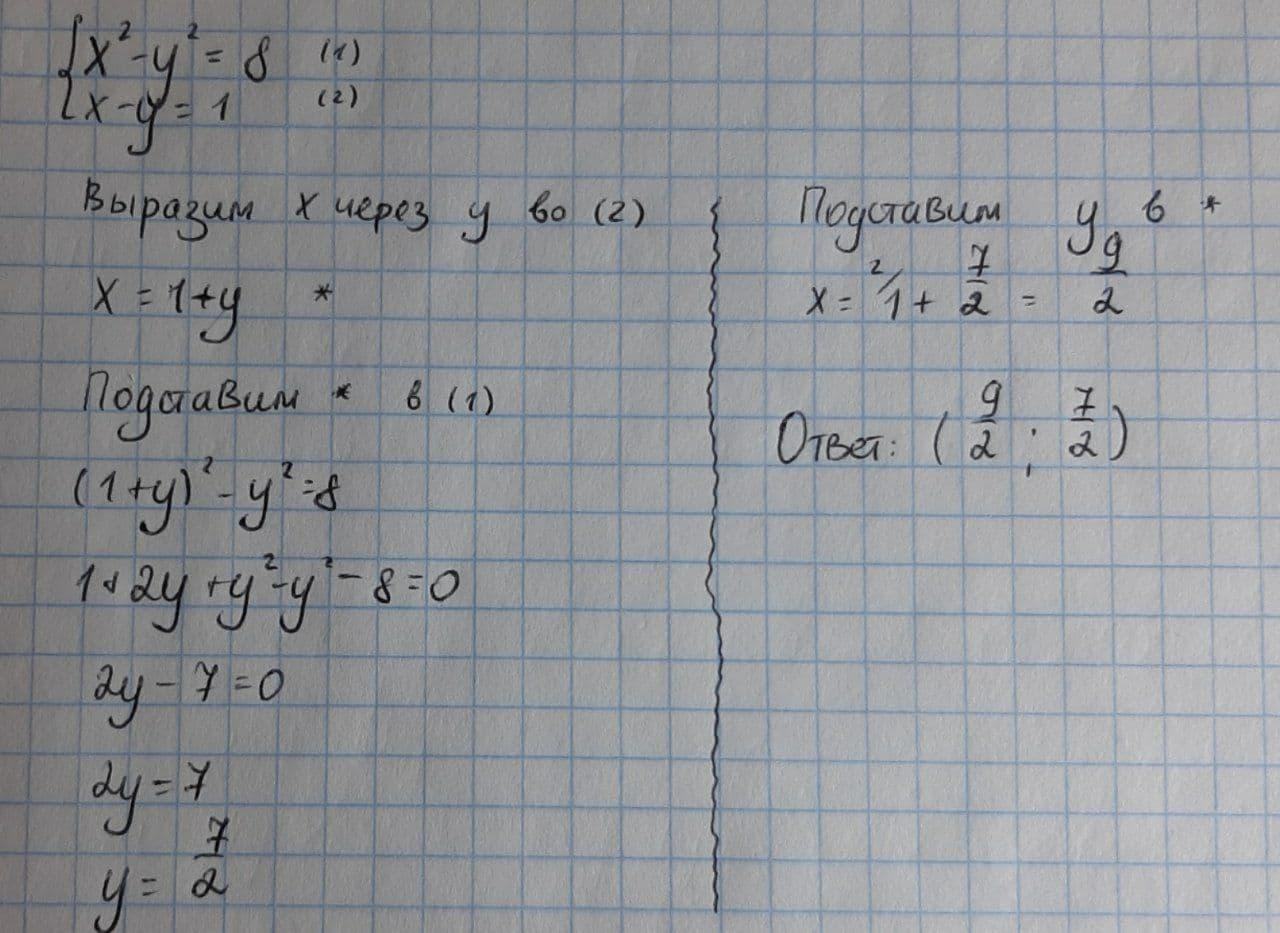 {x² - y² = 8 (1)
{x - y = 1 (2)
Выразим x через y во (2)
x = 1 + y *
Подставим * в (1)
(1+y)² - y² = 8
1 + 2y + y² - y² - 8 = 0
2y - 7 = 0
2y = 7
y = 7/2
Подставим y в *
x = ²/1 + 7/2 = 9/2
Ответ: (9/2 ; 7/2)